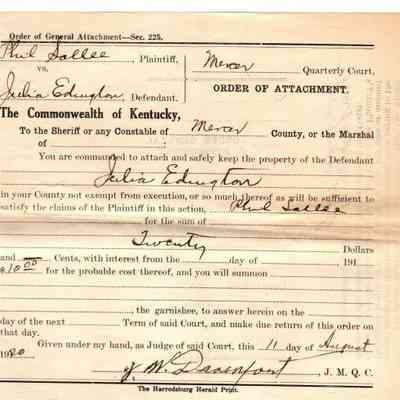 Order of General Attachment—Sec. 225.
Phil Sallee, Plaintiff,
vs.
Julia Edington, Defendant.
Mercer Quarterly Court,
ORDER OF ATTACHMENT.
The Commonwealth of Kentucky,
To the Sheriff or any Constable of Mercer County, or the Marshal
of :
You are commanded to attach and safely keep the property of the Defendant
Julia Edington
in your County not exempt from execution, or so much thereof as will be sufficient to
satisfy the claims of the Plaintiff in this action, Phil Sallee
for the sum of
Twenty Dollars
and — Cents, with interest from the day of , 191
$10 00 for the probable cost thereof, and you will summon
, the garnishee, to answer herein on the
day of the next Term of said Court, and make due return of this order on
that day.
Given under my hand, as Judge of said Court, this 11 day of August
1920
J. W. Davenport, J. M. Q. C.
The Harrodsburg Herald Print.